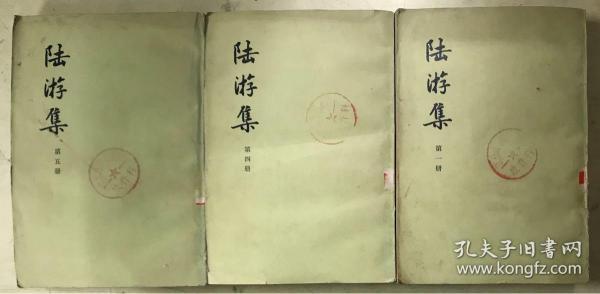 陆游集
第五册
陆游集
第四册
陆游集
第一册
孔夫子旧书网
www.kongfz.com